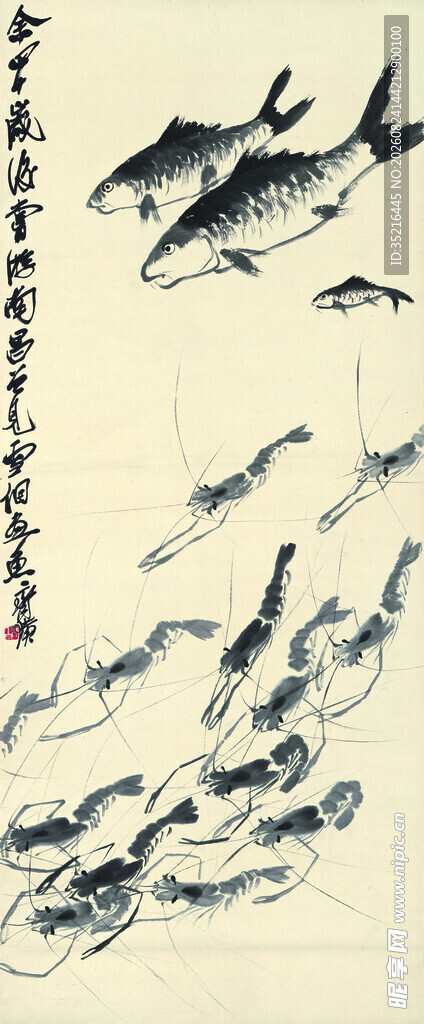 余四十歲後嘗游南昌曾見雪個畫魚 齊璜
ID:35216445 NO:20260824144212900100
昵享网 www.nipic.cn